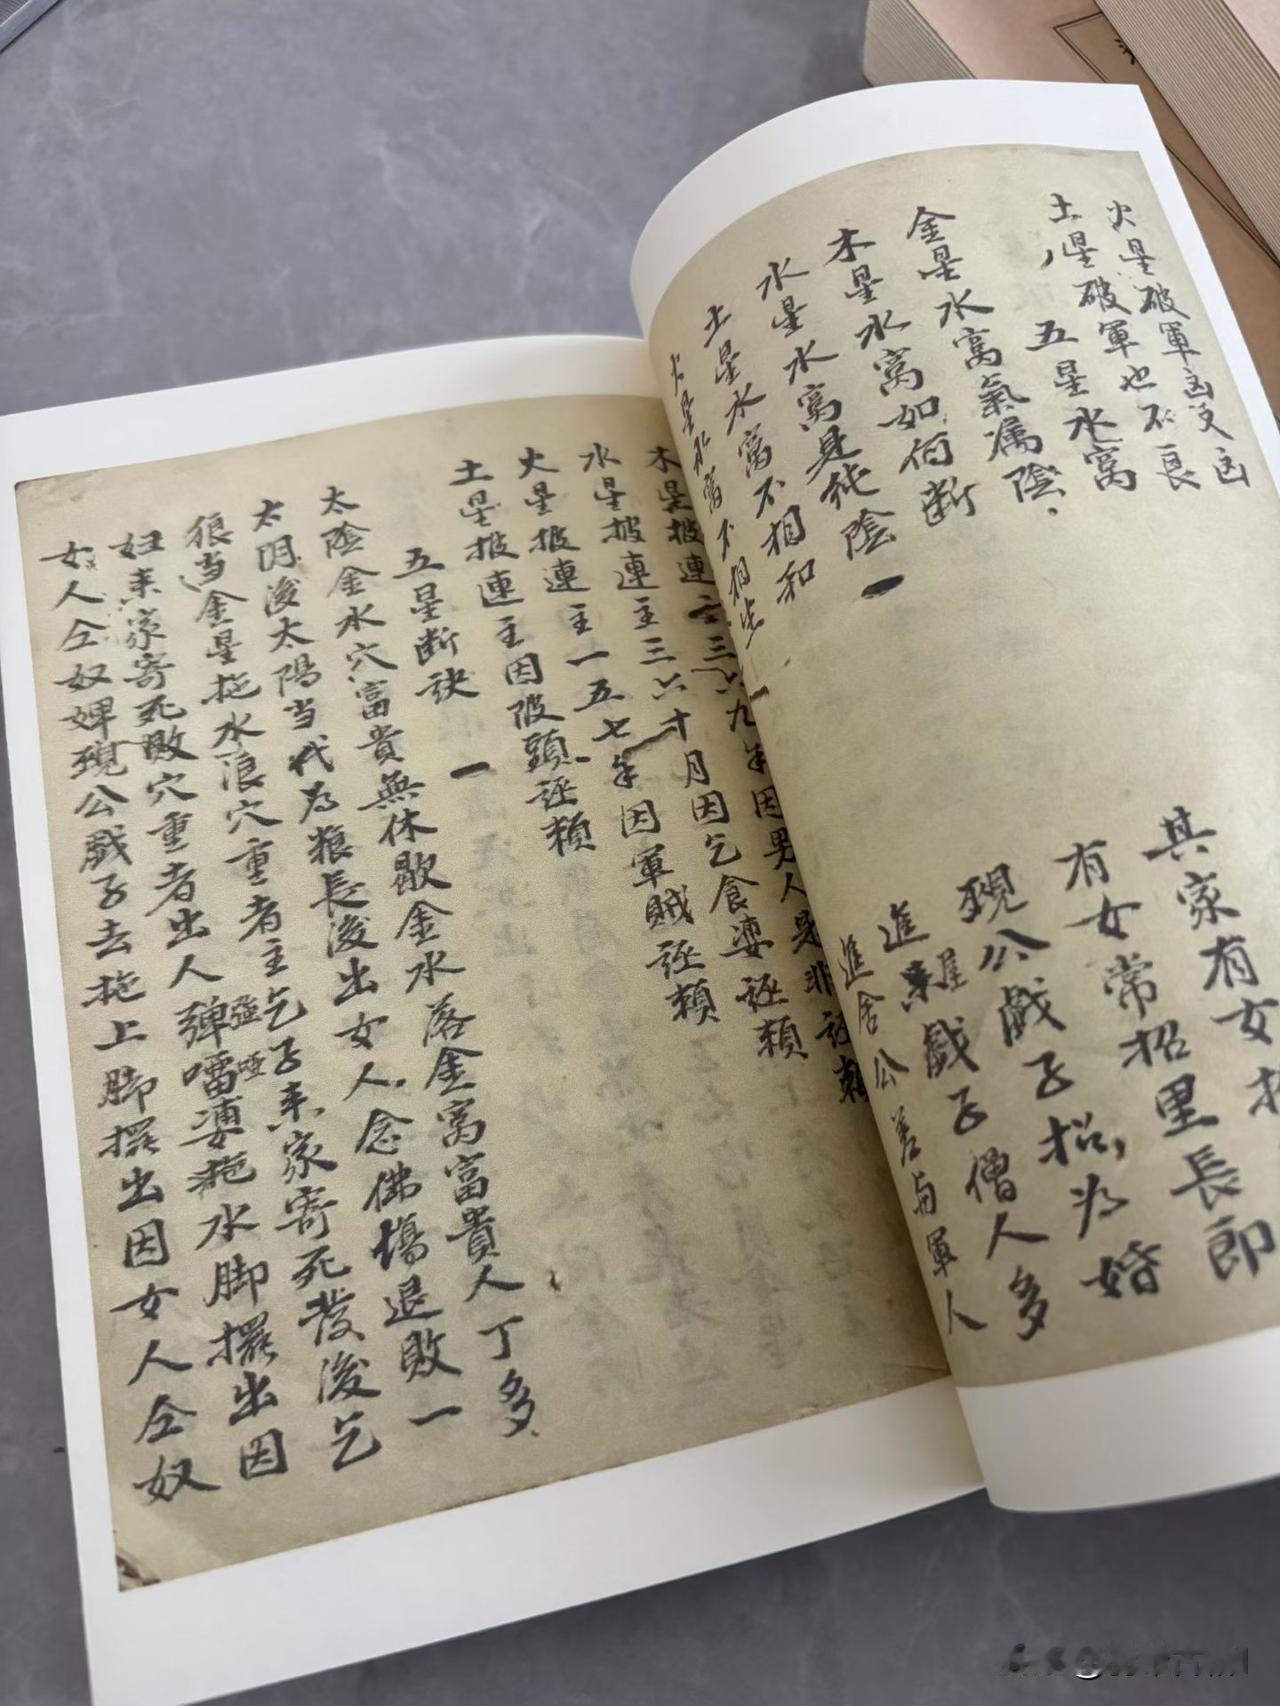 火星破軍凶又凶
土星破軍也不良
五星水窩
金星水窩氣属陰
木星水窩如何断
水星水窩是純陰
土星水窩不相和
火星水窩不相生
其家有女招
有女常招里長郎
現公戯子招為婚
進来屋戯子僧人多
進舍公養与軍人
木星披連主三六九年因男人是非誣賴
水星披連主三六十月因乞食婆誣賴
火星披連主一五七年因軍賊誣賴
土星披連主因陂頭誣賴
五星断訣
太陰金水穴富貴無休歇金水落金窩富貴人丁多
太阴後太陽当代為粮長後出女人念佛塲退敗一
狼当金星拖水浪穴重者主乞子来家寄死發後乞
妇来家寄死敗穴重者出人弾強噹啞婆拖水脚擺出因
女人仝奴婢現公戯子去拖上脚擺出因女人仝奴